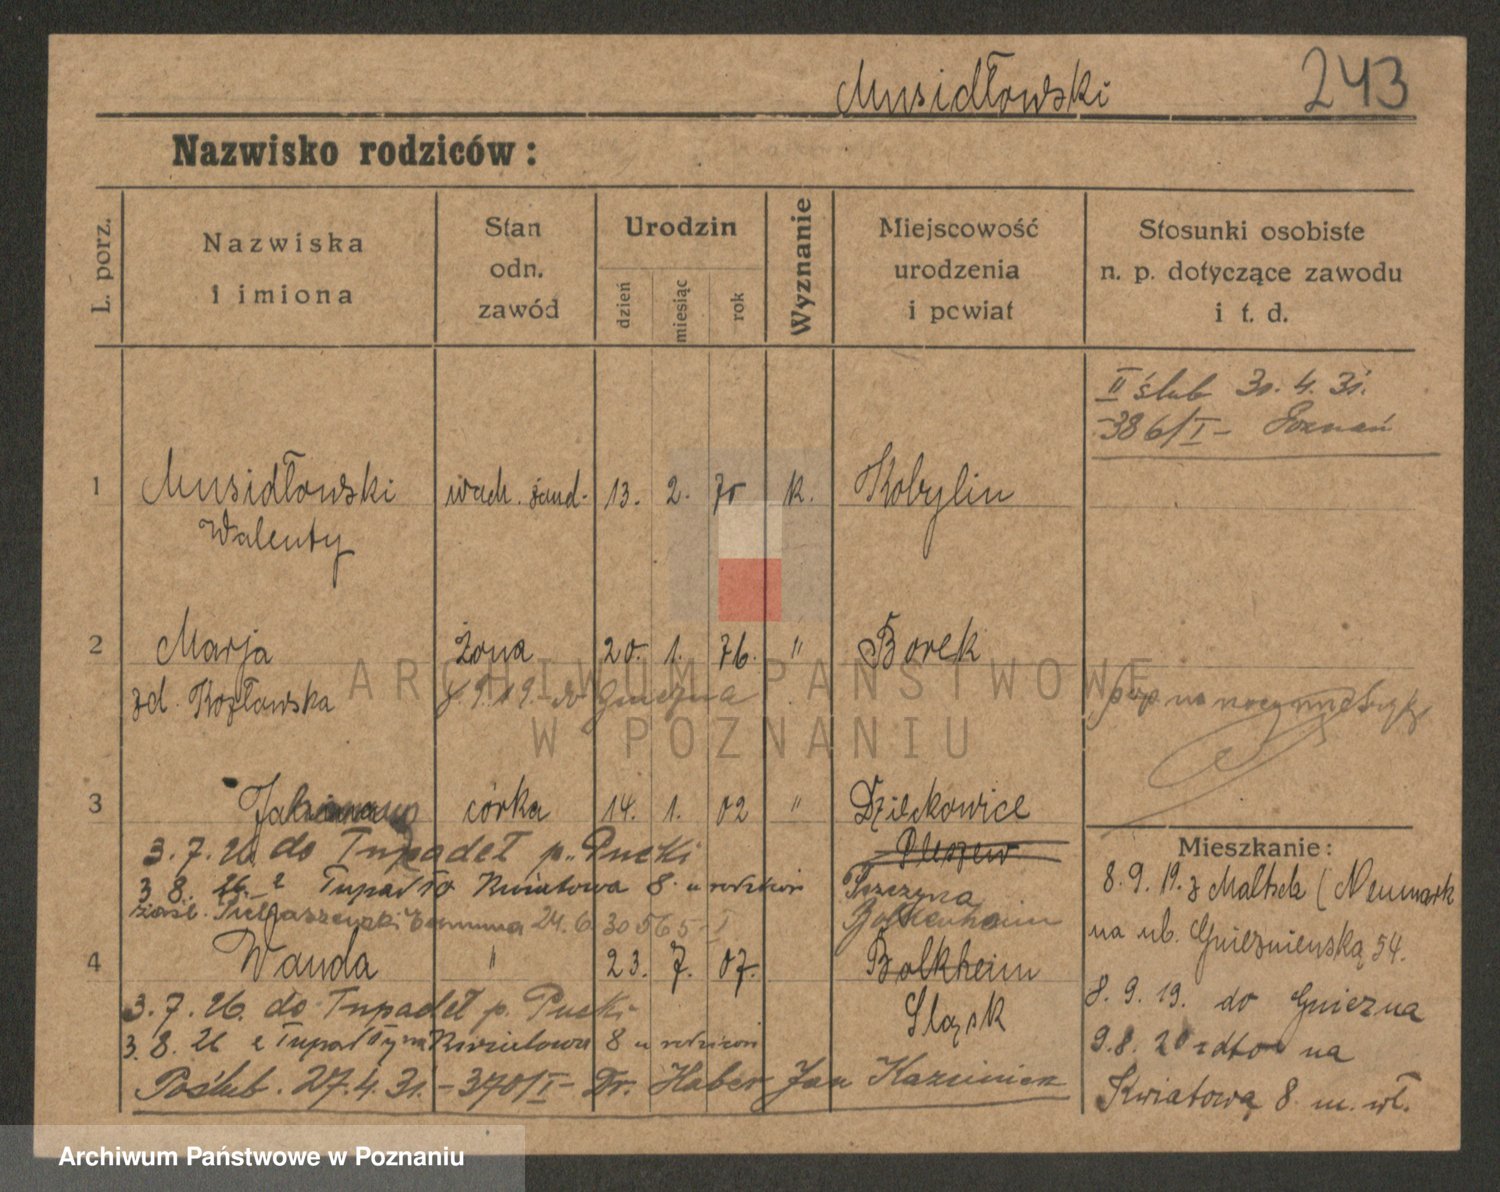 Musidłowski 243
Nazwisko rodziców:
L. porz.
Nazwiska
i imiona
Stan
odn.
zawód
Urodzin
dzień
miesiąc
rok
Wyznanie
Miejscowość
urodzenia
i powiat
Stosunki osobiste
n. p. dotyczące zawodu
i t. d.
II ślub 30. 4. 31.
-386/I- Poznań
1 Musidłowski wach. żand. 13. 2. 70 k. Kobylin
Walenty
2 Marja żona 20. 1. 76. " Borek
zd. Kozłowska
8.9.19. do Gniezna
3 córka 14. 1. 02 " Dzieckowice
Pleszew
3. 7. 26. do Tupadeł p. Pucki
3. 8. 26. z Tupadło Kwiatowa 8. u rodziców
24. 6. 30 565 - I
4 Wanda " 23. 7. 07. Bolkheim
Śląsk
3. 7. 26. do Tupadeł p. Pucki
3. 8. 26 z Kwiatowa 8 u rodziców
Poślub. 27. 4. 31. - 370/I - Dr. Haber Jan Kazimierz
Mieszkanie:
8. 9. 19. z (Neumark
na ul. Gnieźnieńską 54.
8. 9. 19. do Gniezna
9. 8. 20 z dto na
Kwiatową 8 m. wł.
ARCHIWUM PAŃSTWOWE
W POZNANIU
Archiwum Państwowe w Poznaniu